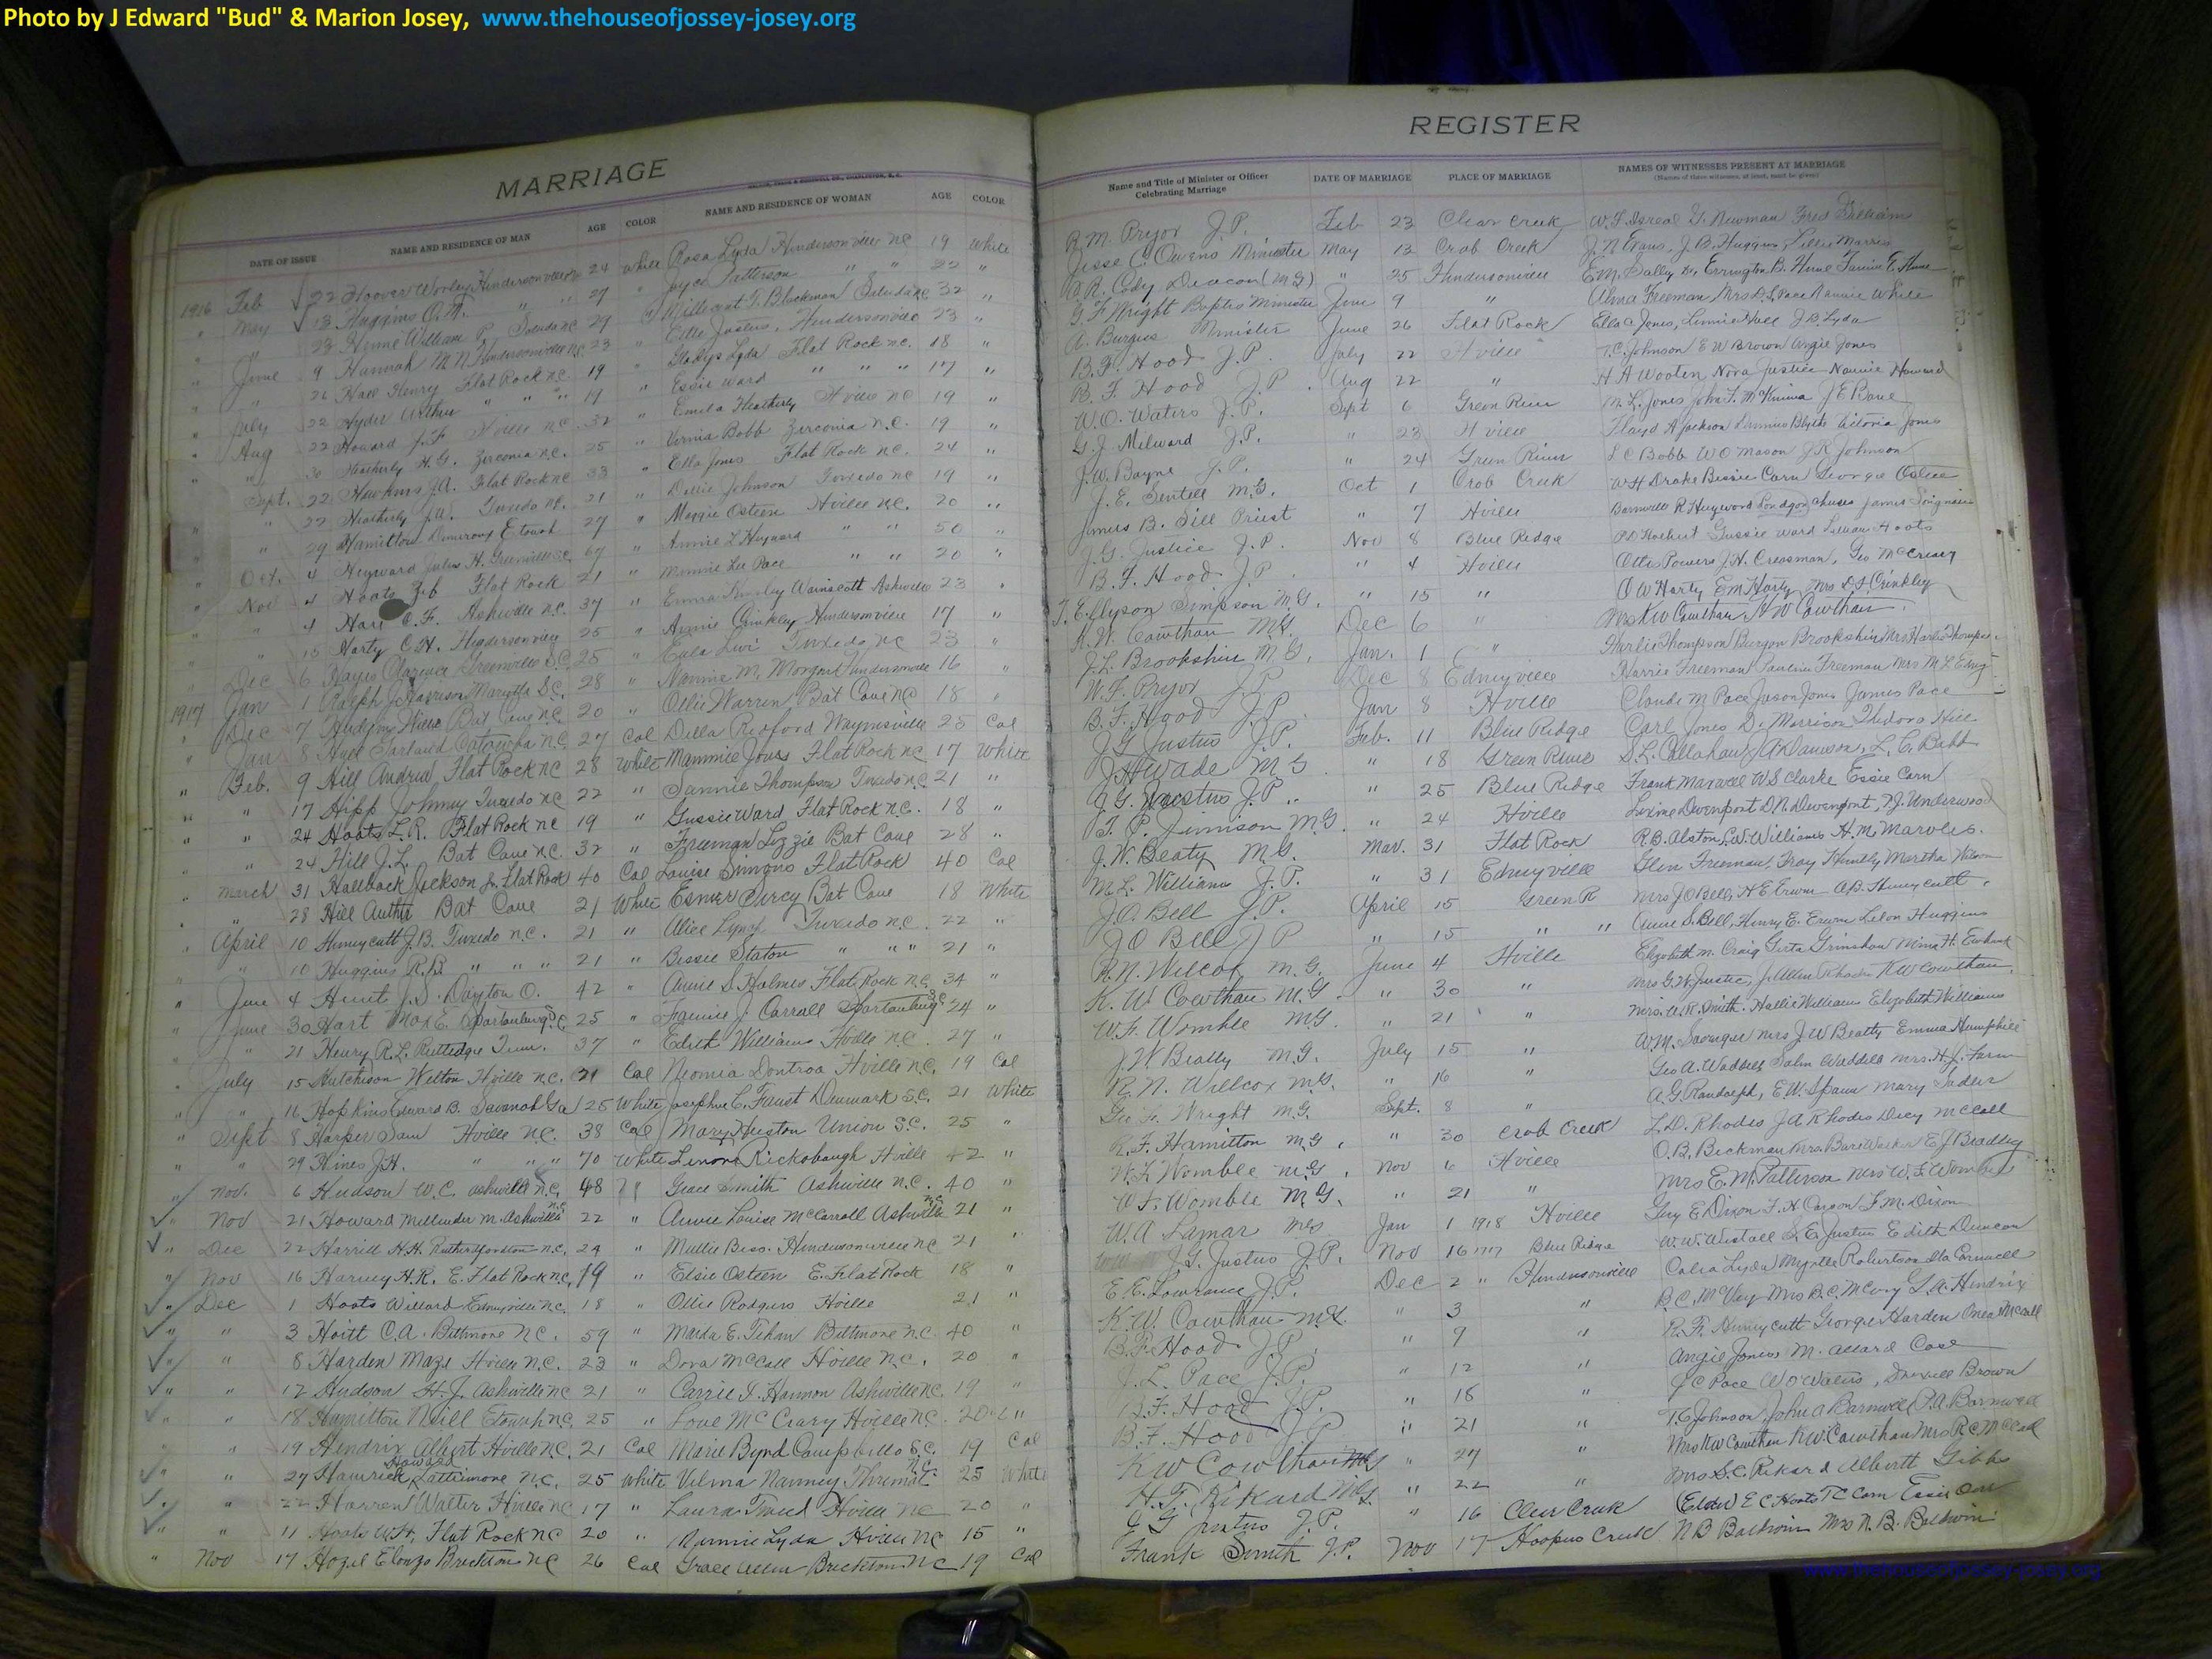 Photo by J Edward "Bud" & Marion Josey, www.thehouseofjossey-josey.org
MARRIAGE
REGISTER
DATE OF ISSUE NAME AND RESIDENCE OF MAN AGE COLOR NAME AND RESIDENCE OF WOMAN AGE COLOR
Name and Title of Minister or Officer Celebrating Marriage DATE OF MARRIAGE PLACE OF MARRIAGE NAMES OF WITNESSES PRESENT AT MARRIAGE
(Names of three witnesses, at least, must be given)
1916 Feb 22 Hoover Worley Hendersonville NC 24 White Rosa Lyda Hendersonville NC 19 White
" May 13 Huggins O.M. " " 27 " Joyce Patterson " " 22 "
" " 23 Henne William P. Saluda NC 29 " Millicent T. Blackman Saluda NC 32 "
" June 9 Hannah M N Hendersonville N.C. 23 " Hendersonville 23 "
" " 26 Hall Henry Flat Rock N.C. 19 " Gladys Lyda Flat Rock N.C. 18 "
" July 22 Hyder " " " 19 " Essie Ward " " " 17 "
" Aug 22 Howard J.F. Hville N.C. 32 " Heatherly Hville NC 19 "
" " 30 Heatherly H.G. Zirconia N.C. 25 " Bobb Zirconia N.C. 19 "
" Sept. 22 Hawkins J.A. Flat Rock NC 33 " Ella Jones Flat Rock N.C. 24 "
" " 22 Heatherly J.W. Tuxedo N.C. 21 " Johnson Tuxedo N.C. 19 "
" " 29 Hamilton Etowah 27 " Maggie Osteen Hville N.C. 20 "
" Oct. 4 Heyward Julius H. Greenville S.C. 67 " Annie L Heyward " " 50 "
" Nov 4 Hoots Zeb Flat Rock 21 " Minnie Lee Pace " " 20 "
" " 4 Hari C.F. Asheville N.C. 37 " Emma Wainscott Asheville 23 "
" " 15 Harty C.H. Hendersonville 25 " Annie Crinkley Hendersonville 17 "
" Dec 6 Hayes Clarence Greenville S.C. 25 " Eula Tuxedo N.C. 23 "
1917 Jan 1 Ralph J Harrison Marietta S.C. 28 " Nannie M. Hendersonville 16 "
" Dec 7 Bat Cave N.C. 20 " Ollie Warren Bat Cave NC 18 "
" Jan 8 Catawba N.C. 27 Col Della Redford Waynesville 25 Col
" Feb. 9 Hill Andrew Flat Rock NC 28 White Mammie Jones Flat Rock NC 17 White
" " 17 Hipp Johnny Tuxedo NC 22 " Thompson Tuxedo N.C. 21 "
" " 24 Hoots L.R. Flat Rock NC 19 " Gussie Ward Flat Rock N.C. 18 "
" " 24 Hill J.L. Bat Cave N.C. 32 " Freeman Lizzie Bat Cave 28 "
" March 31 Hallback Jackson Jr. Flat Rock 40 Col Louise Simons Flat Rock 40 Col
" " 28 Hill Bat Cave 21 White Bat Cave 18 White
" April 10 Huneycutt J.B. Tuxedo N.C. 21 " Alice Lynch Tuxedo N.C. 22 "
" " 10 Huggins R.B. " " " 21 " Bessie Staton " " " 21 "
" June 4 Hunt J.S. Dayton O. 42 " Annie S Holmes Flat Rock N.C. 34 "
" June 30 Hart Max E. Spartanburg S.C. 25 " Fannie J. Carroll Spartanburg S.C. 24 "
" " 21 Henry R.L. Rutledge Tenn. 37 " Edith Williams Hville N.C. 27 "
" July 15 Hutchison Welton Hville N.C. 21 Col Neomia Dontroa Hville N.C. 19 Col
" " 16 Hopkins Edward B. Savanah Ga 25 White Josephine C. Faust Denmark S.C. 21 White
" Sept 8 Harper Sam Hville N.C. 38 Col Mary Heuston Union S.C. 25 "
" " 29 Hines J.H. " " " 70 White Lenora Rickobaugh Hville 42 "
" Nov. 6 Hudson W.C. Asheville N.C. 48 " Grace Smith Asheville N.C. 40 "
" Nov 21 Howard Millender M. Asheville N.C. 22 " Annie Louise McCarroll Asheville N.C. 21 "
" Dec 22 Harrill H.H. Rutherfordton N.C. 24 " Millie Hendersonville NC 21 "
" Nov 16 Harvey H.R. E. Flat Rock N.C. 19 " Elsie Osteen E. Flat Rock 18 "
" Dec 1 Hoots Willard Edneyville N.C. 18 " Ollie Rodgers Hville 21 "
" " 3 Hoitt C.A. Biltmore N.C. 59 " Maida E. Biltmore N.C. 40 "
" " 8 Harden Maze Hville N.C. 23 " Dova McCall Hville N.C. 20 "
" " 12 Hudson H.J. Asheville NC 21 " Carrie I. Harmon Asheville N.C. 19 "
" " 18 Hamilton Neill Etowah N.C. 25 " Love McCrary Hville N.C. 20 "
" " 19 Hendrix Albert Hville N.C. 21 Col Marie Byrd Campobello S.C. 19 Col
" " 27 Hamrick Howard Lattimore N.C. 25 White Velma Nanney N.C. 25 White
" " 22 Harren Walter Hville NC 17 " Laura Hville NC 20 "
" " 11 Hoots W.H. Flat Rock NC 20 " Nannie Lyda Hville NC 15 "
" Nov 17 Hozel Elonzo Brickton NC 26 Col Grace Allen Brickton NC 19 Col
R.M. Pryor J.P. Feb 23 Clear Creek W.F. Isreal G. Newman Fred Gilliam
Jesse C. Owens Minister May 13 Crab Creek J.N. Evans, J.B. Huggins, Lillie Morris
A.R. Cody Deacon (M G) " 25 Hendersonville
G F Wright Baptis Minister June 9 " Alma Freeman Mrs D.S. Pace Nannie White
A. Burgess Minister June 26 Flat Rock Ella C Jones, Hall J.B. Lyda
B.F. Hood J.P. July 22 Hville T.C. Johnson E W Brown Angie Jones
B.F. Hood J.P. Aug 22 " H A Wooten Nova Justice Nannie Howard
W.O. Waters J.P. Sept 6 Green River M.L. Jones John F. McKinna J E Bane
G.J. Milward J.P. " 23 Hville Floyd A Jackson Blythe Victoria Jones
J.W. Bayne J.P. " 24 Green River L C Bobb W O Mason J R Johnson
J.E. Sentell M.G. Oct 1 Crab Creek W H Drake Bessie Carn George Oslee
James B. Sill Priest " 7 Hville Barnwell R Heyward
J.G. Justice J.P. Nov 8 Blue Ridge Gussie Ward Hoots
B.F. Hood J.P. " 4 Hville Otto Powers J.H. Creasman, Geo McCrary
T. Ellyson Simpson M.G. " 15 " O W Harty E M Harty Mrs D.F. Crinkley
K.W. Cawthan M.G. Dec 6 " Mrs K W Cawthan, K W Cawthan
J.L. Brookshire M.G. Jan. 1 " Harlie Thompson Burgon Brookshire Mrs Harlie Thompson
W.F. Pryor J.P. Dec 8 Edneyville Harrie Freeman Pauline Freeman Mrs M L Edney
B.F. Hood J.P. Jan 8 Hville Claude M Pace Jason Jones James Pace
J.G. Justus J.P. Feb. 11 Blue Ridge Carl Jones D. Morrison Theodore Hill
J H Wade M G " 18 Green River S.L. Callahan, J A Dawson, L.C. Babb
J.G. Justus J.P. " 25 Blue Ridge Frank Maxwell W S Clarke Essie Carn
J.P. Jimison M.G. " 24 Hville Davenport D.N. Davenport, Underwood
J.W. Beaty M.G. Mar. 31 Flat Rock R.B. Alston, C.W. Williams H.M. Marvles.
M.L. Williams J.P. " 31 Edneyville Glen Freeman, Fray Huntly Martha Wilson
J.O. Bell J.P. April 15 Green R Mrs J O Bell, H E Erwin A.B. Huneycutt
J O Bell J P " 15 " " Annie S. Bell, Henry E. Erwin Lelon Huggins
R.N. Wilcox M.G. June 4 Hville Elizabeth M. Craig Greta Grimshaw
K.W. Cawthan M.G. " 30 " Mrs G.W. Justice, J Allen Rhodes K W Cawthan
W.F. Womble M.G. " 21 " Mrs. A.R. Smith. Hallie Williams Elizabeth Williams
J.W. Beatty M.G. July 15 " W.M. Mrs J W Beatty Emma Humphies
R.N. Willcox M.G. " 16 " Geo A. Waddell, Waddell Mrs. H.J. Farm
Geo F. Wright M.G. Sept. 8 " A.G. Randolph, E.W. Spann Mary Sadler
R.F. Hamilton M.G. " 30 Crab Creek L.D. Rhodes J A Rhodes McCall
W.F. Womble M.G. Nov 6 Hville O.B. Beckman Mrs. E J Bradley
W.F. Womble M.G. " 21 " Mrs E.M. Patterson Mrs W.F. Womble
W.A. Lamar M G Jan 1 1918 Hville Guy E Dixon F. H Carson F M. Dixon
J.G. Justus J.P. Nov 16 1917 Blue Ridge W.W. Westall S.E. Justus Edith Duncan
E.E. Lowrance J.P. Dec 2 " Hendersonville Lyda Myrtle Robertson
K.W. Cawthan M.G. " 3 " B.C. McVey Mrs B.C. McVey G.A. Hendrix
B.F. Hood J.P. " 9 " R.F. Huneycutt George Harden McCall
J.L. Pace J.P. " 12 " Angie Jones M. Allard Case
B.F. Hood J.P. " 18 " J C Pace W O Waters, Brown
B.F. Hood J P " 21 " T.C. Johnson John A Barnwell P.A. Barnwell
K W Cawthan MG " 27 " Mrs K W Cawthan K W Cawthan Mrs R C McCall
H.F. Rikard M G " 22 " Mrs S.C. Rikard Albertt Gibbs
J G Justus J.P. " 16 Clear Creek (Elder) E C Hoots T C Carn Essie Orr
Frank Smith J.P. Nov 17 Hoopers Creek N B Baldwin Mrs N.B. Baldwin
www.thehouseofjossey-josey.org